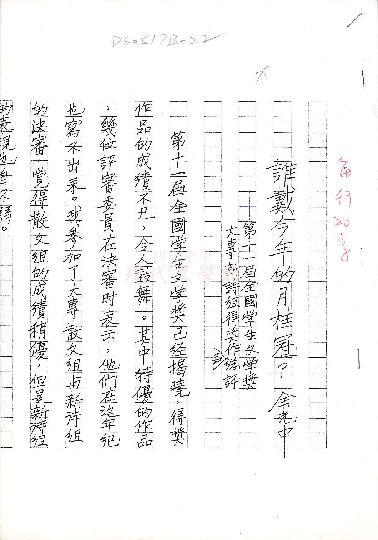 DS0517B-22
每行20字
誰戴今年的月桂冠？ 余光中
第十一屆全國學生文學獎
大專新詩組得獎作總評
第十一屆全國學生文學獎已經揭曉，得獎
作品的成績不凡，令人鼓舞。其中特優的作品
，幾位評審委員在決審時表示，他們在這年紀
也寫不出來。我參加了大專散文組與新詩組
的決審，覺得散文組的成績稍優，但是新詩組
的表現也並不弱。